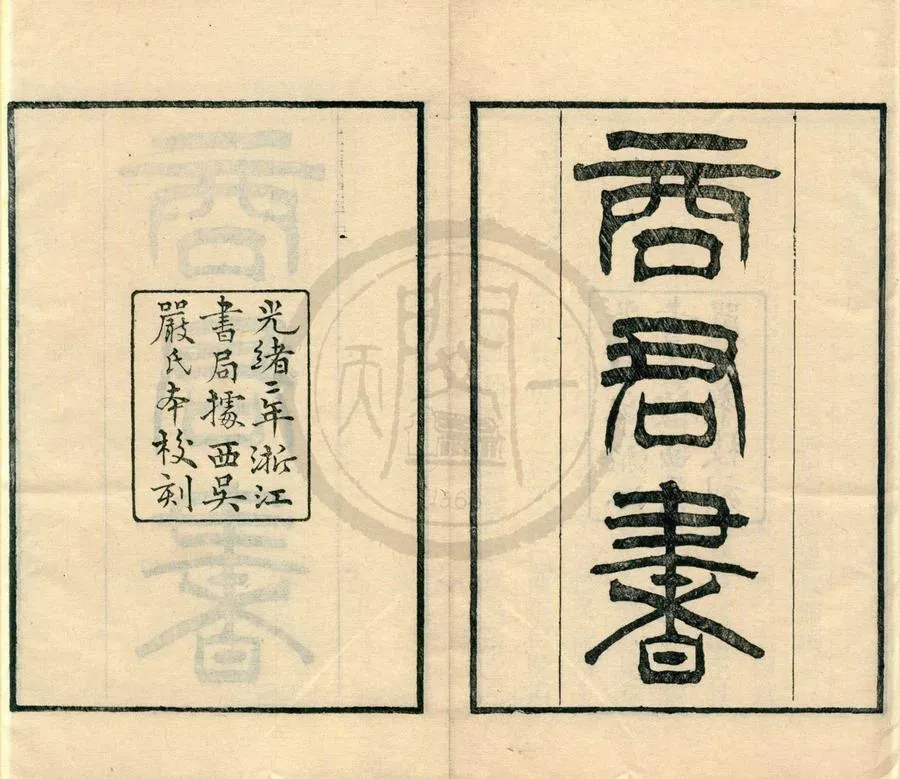 商君書
光緒二年浙江
書局據西吳
嚴氏本校刻
天一閣
1566